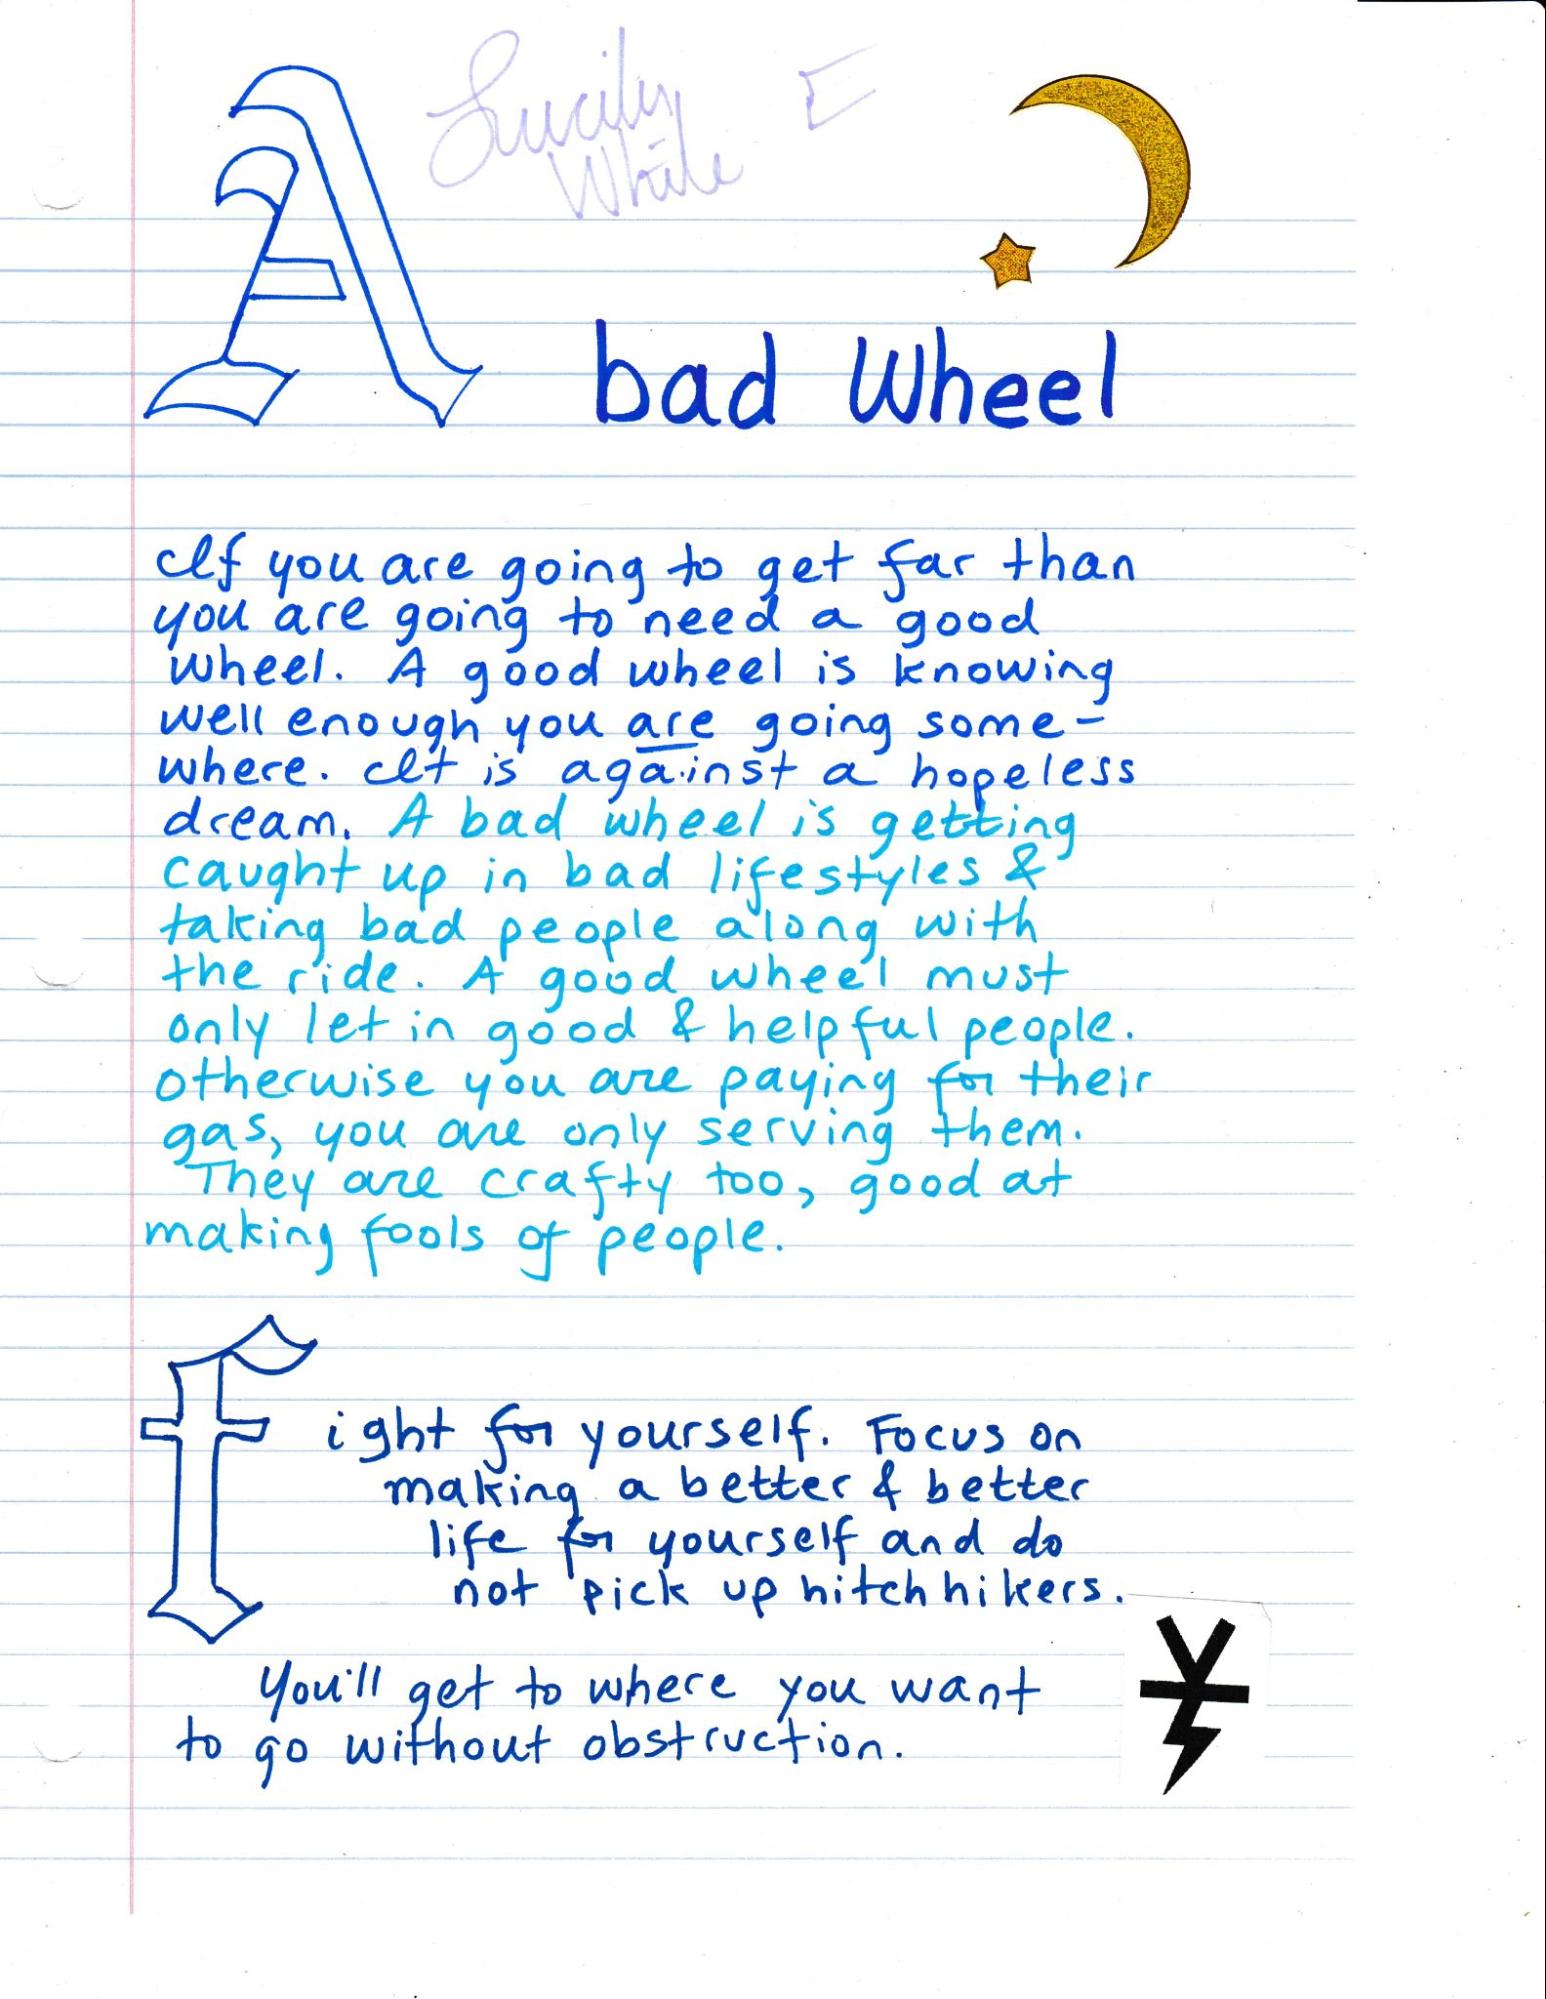 Lucily E
White
A bad Wheel
If you are going to get far than
you are going to need a good
wheel. A good wheel is knowing
well enough you are going some-
where. It is against a hopeless
dream. A bad wheel is getting
caught up in bad lifestyles &
taking bad people along with
the ride. A good wheel must
only let in good & helpful people.
otherwise you are paying for their
gas, you are only serving them.
They are crafty too, good at
making fools of people.
fight for yourself. Focus on
making a better & better
life for yourself and do
not pick up hitchhikers.
You'll get to where you want
to go without obstruction.